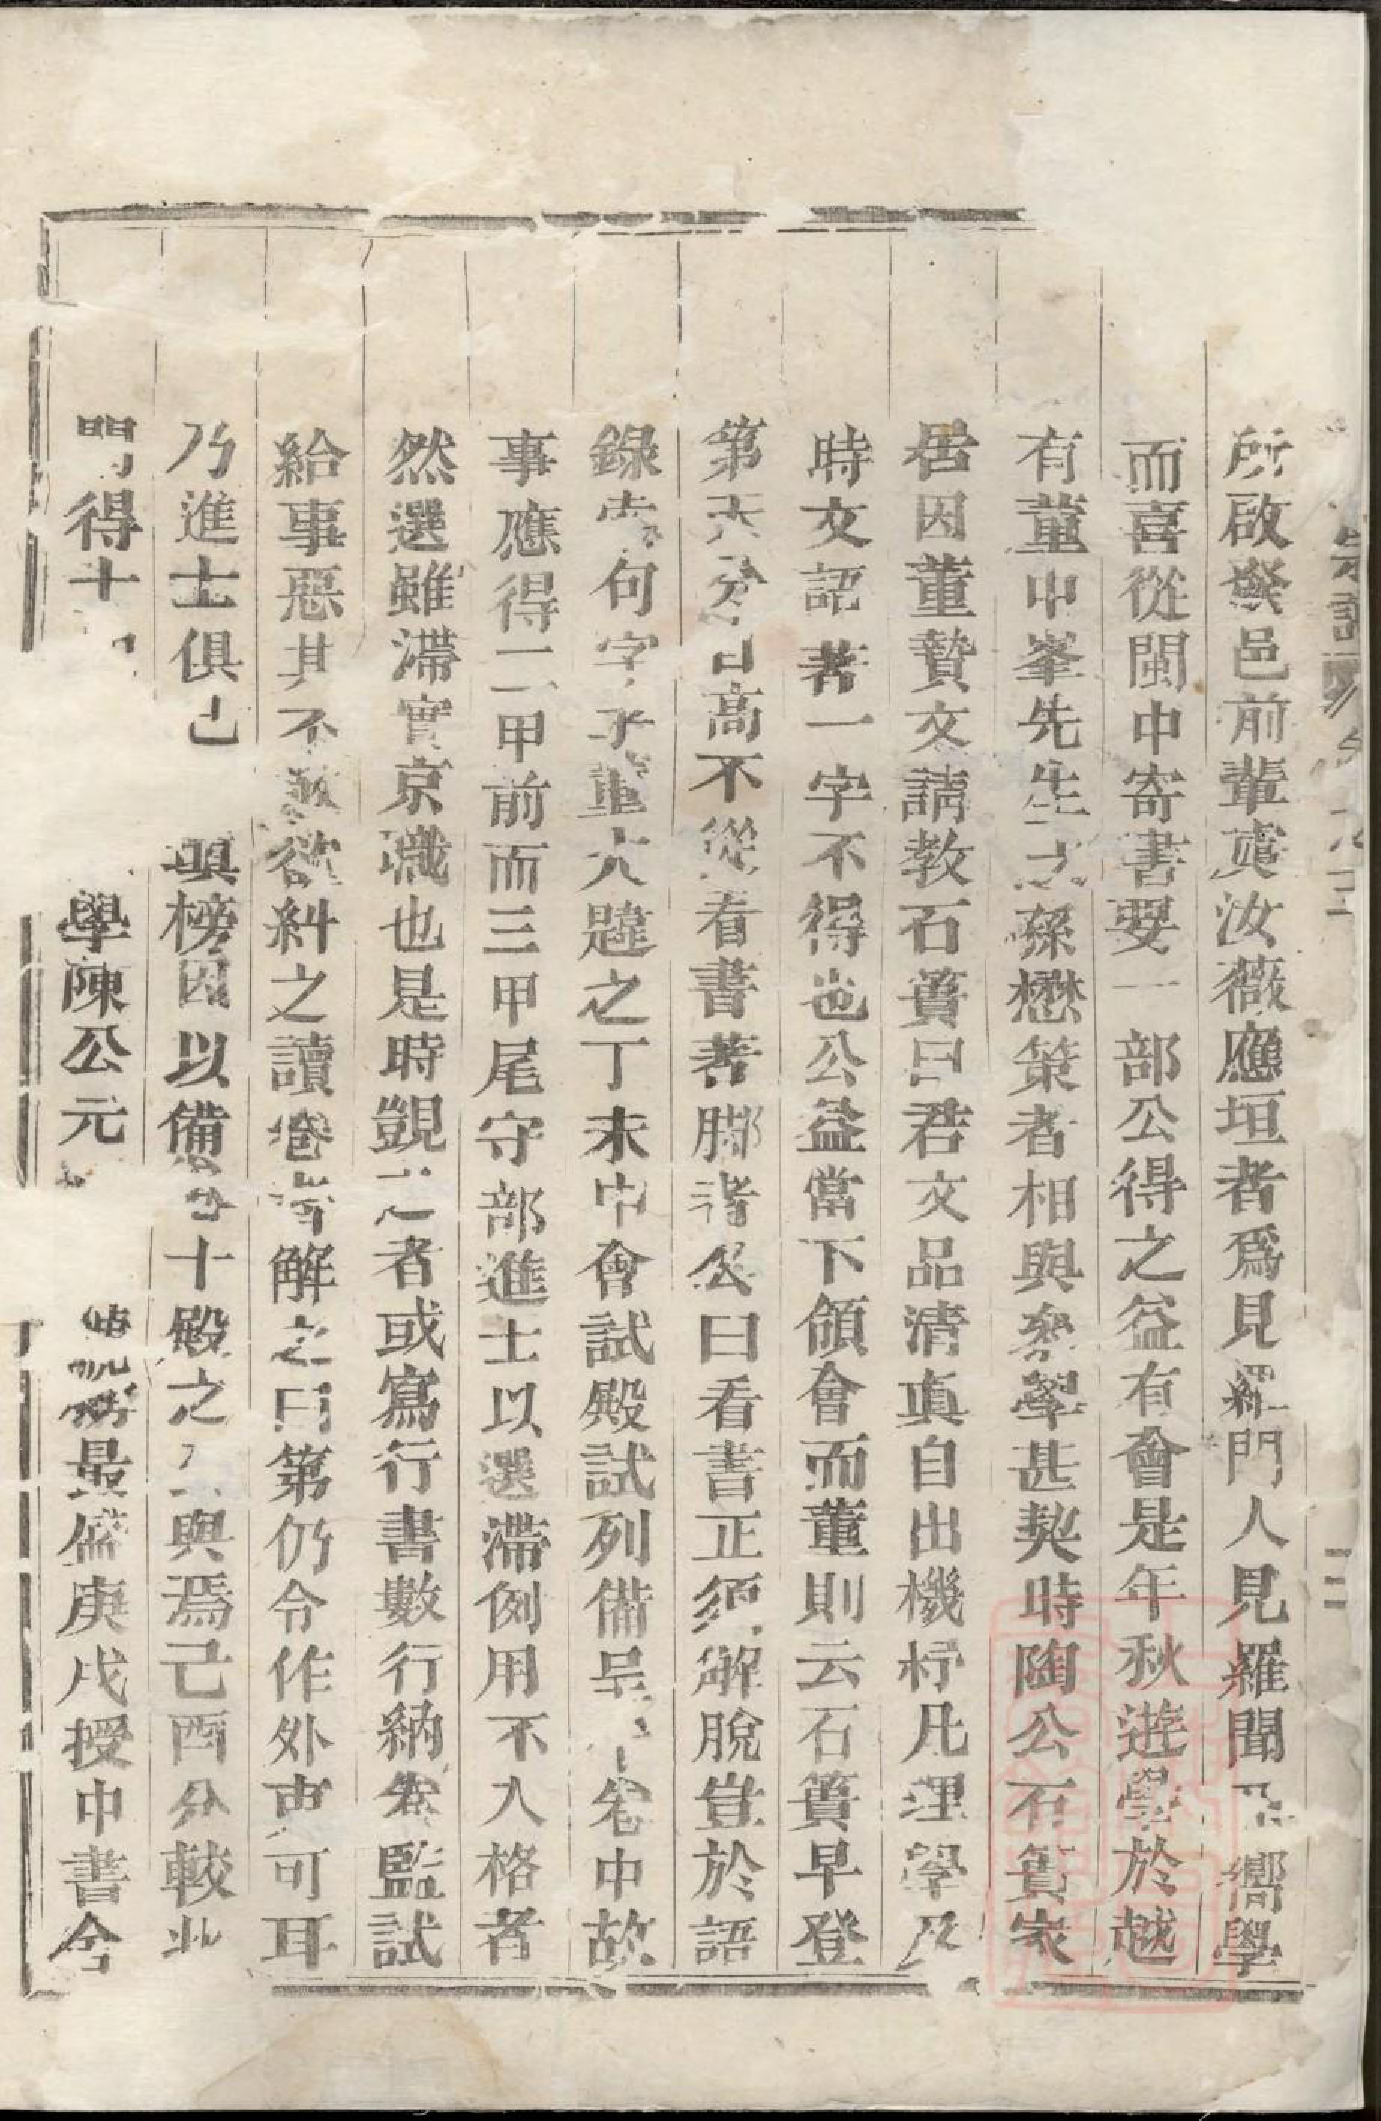 所啟發邑前輩黃汝薇應垣者為見羅門人見羅聞 嚮學
而喜從閩中寄書要一部公得之益有會是年秋遊學於越
有董中峯先生之孫懋策者相與參學甚契時陶公石簣家
居因董贄文請教石簣曰君文品清真自出機杼凡理學及
時文語著一字不得也公益當下領會而董則云石簣早登
第 高不從看書著腳 公曰看書正須解脫豈於語
錄 句字 董大韙之丁未中會試殿試列備呈 卷中故
事應得二甲前而三甲尾守部進士以選滯例用不入格者
然選雖滯實京職也是時覬之者或寫行書數行納卷監試
給事惡其不 欲糾之讀卷者解之曰第仍令作外吏可耳
乃進士俱已 填榜因以備 十殿之 與焉己酉分較北
門得十 學陳公元 號稱最盛庚戌授中書舍